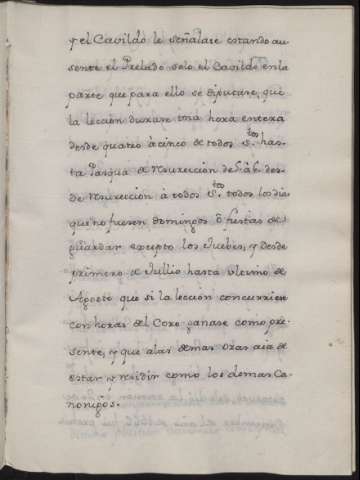 q el Cavildo le señalare estando au
sente el Prelado solo el Cavildo en la
parte que para ello se diputare, que
la leccion durase una hora entera
desde quatro à cinco de todos S.tos has-
ta Pasqua de Resureccion
de Resureccion à todos S.tos todos los dias
que no fuesen domingos ò fiestas de
guardar excepto los Jueves, y desde
primero de Jullio hasta ultimo de
Agosto que si la leccion concurriere
con horas del Coro ganase como pre-
sente, y que alas demas oras aia de
estar y residir como los demas Ca-
nonigos.